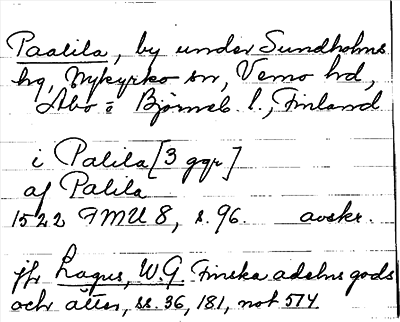 Paalila, by under Sundholms
hg, Nykyrko sn, Vemo hd,
Åbo o Björneb l., Finland
i Palila [3 ggr]
af Palila
1522 FMU 8, s. 96. avskr.
jfr Lagus, W.G. Finska adelns gods
och ätter, ss. 36, 181, not 574